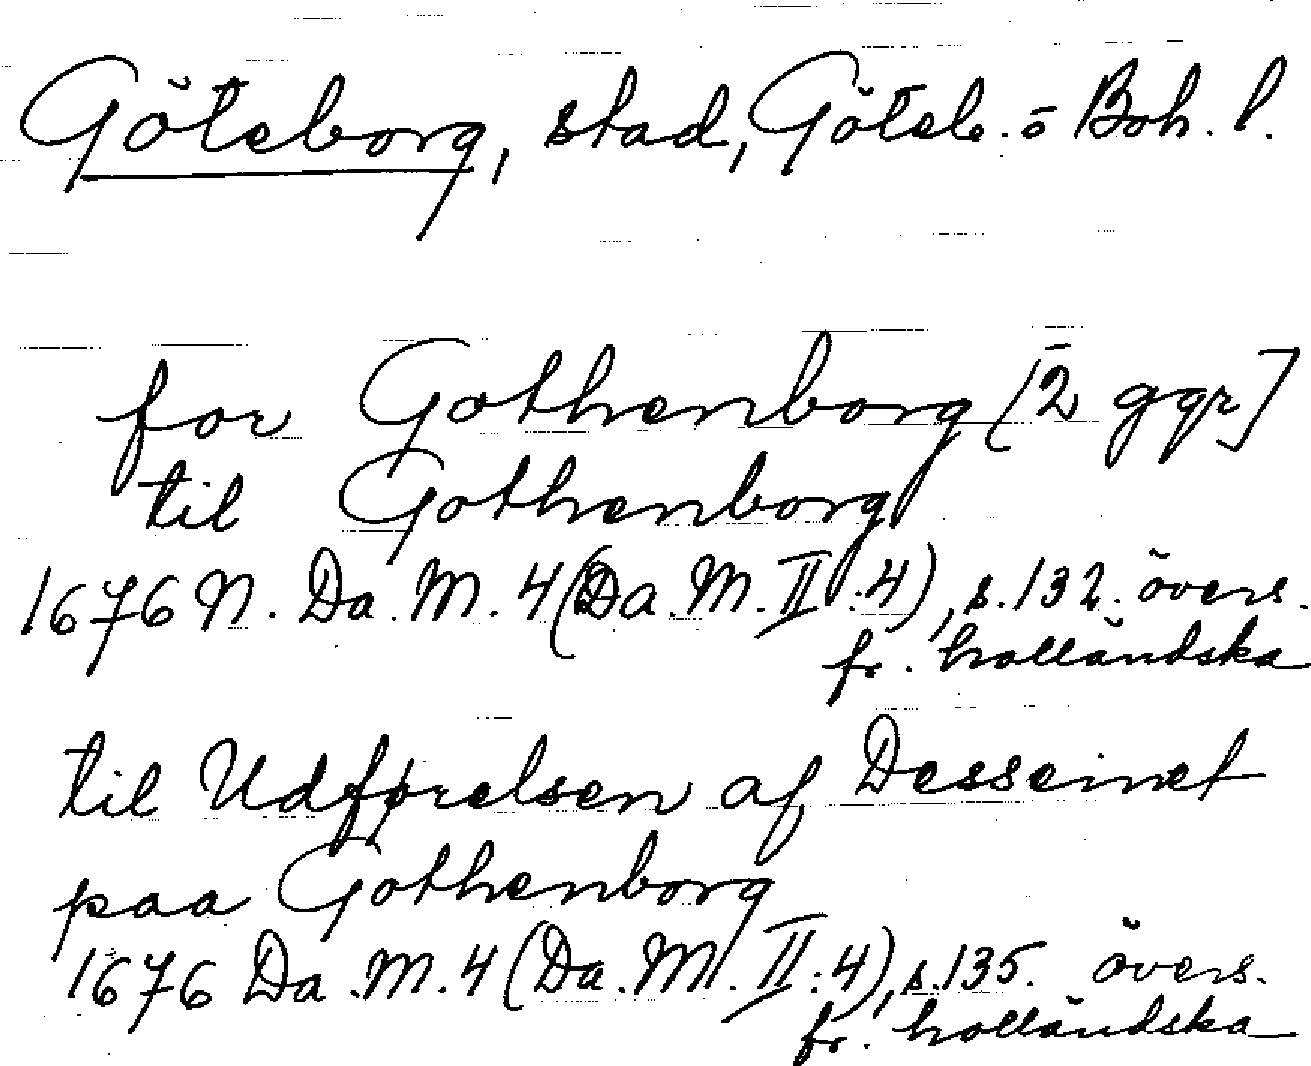 Göteborg, stad, Göteb. o Boh. l.
for Gothenborg [2 ggr]
til Gothenborg
1676 N. Da. M. 4 (Da. M. II:4), s. 132. övers.
fr. holländska
til Udførelsen af Desseinet
paa Gothenborg
1676 Da. M. 4 (Da. M. II:4), s. 135. övers.
fr. holländska